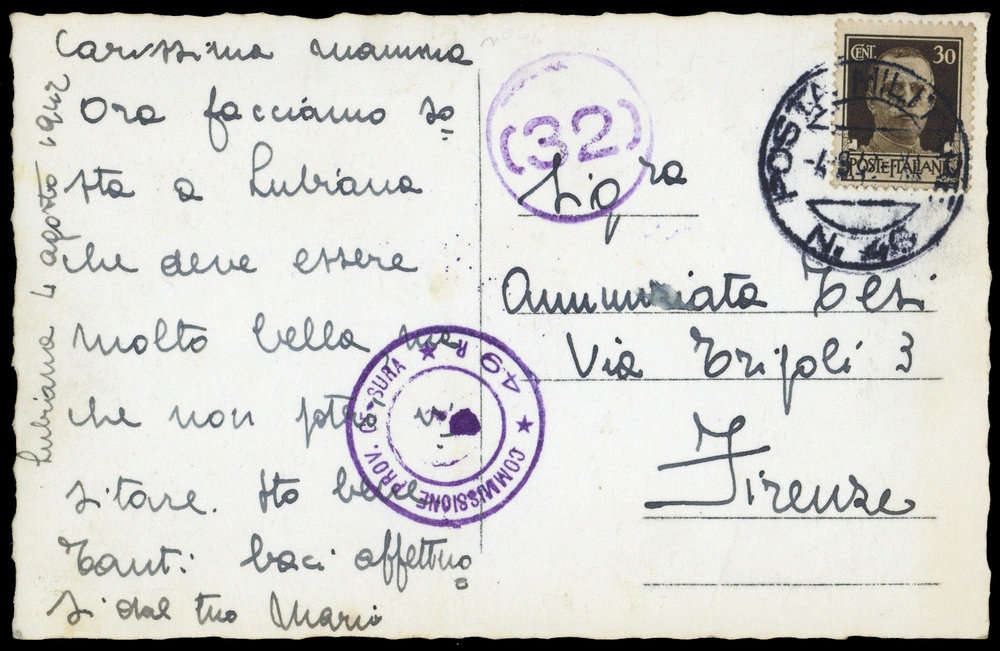 Lubiana 4 agosto 1942
Carissima mamma
Ora facciamo so
sta a Lubiana
che deve essere
molto bella, ma
che non potrò vi
sitare. Sto bene
Tanti baci affettuo
si dal tuo Mario
(32)
COMMISSIONE PROV. CENSURA
49 R
CENT. 30
POSTE ITALIANE
POSTA MILITARE
N. 46
Sig.ra
Annunziata Tesi
Via Tripoli 3
Firenze